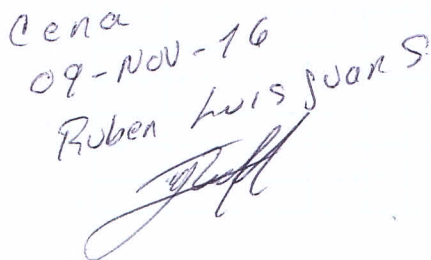 Cena
09-NOV-16
Ruben Luis Juan S